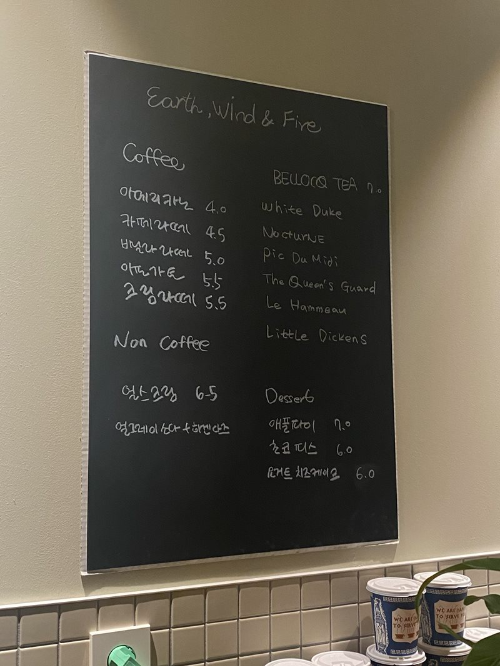 Earth, Wind & Fire
Coffee
아메리카노 4.0
카페라떼 4.5
바닐라라떼 5.0
아포가토 5.5
크림라떼 5.5
Non Coffee
얼스크림 6.5
얼그레이소다 + 하겐다즈
BELLOCQ TEA 7.0
White Duke
Nocturne
Pic Du Midi
The Queen's Guard
Le Hameau
Little Dickens
Dessert
애플파이 7.0
초코퍼지 6.0
요거트치즈케이크 6.0
WE ARE
TO SERVE
WE ARE
TO SERVE